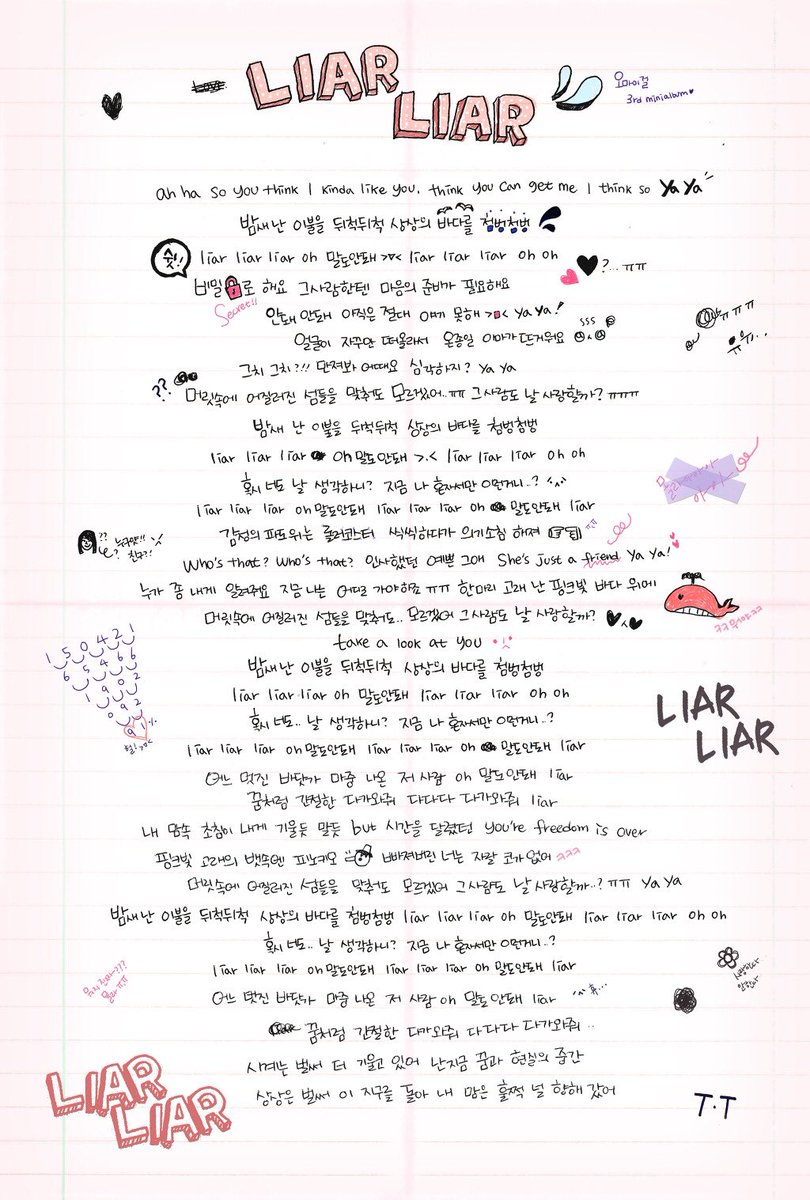 LOVE
LIAR
LIAR
오마이걸
3rd minialbum
ah ha so you think I kinda like you. think you can get me I think so Ya Ya
밤새 난 이불을 뒤척뒤척 상상의 바다를 첨벙첨벙
쉿!
liar liar liar oh 말도안돼 >o< liar liar liar oh oh
?...ㅠㅠ
비밀로 해요 그사람한텐 마음의 준비가 필요해요
Secret!!
안돼 안돼 아직은 절대 얘기 못해 >ㅁ< Ya Ya!
얼굴이 자꾸만 떠올라서 온종일 이마가 뜨거워요
sss
그치 그치?!! 만져봐 어때요 심각하지? Ya Ya
??
머릿속에 어질러진 섬들을 맞춰도 모르겠어..ㅠㅠ 그사람도 날 사랑할까? ㅠㅠㅠ
밤새 난 이불을 뒤척뒤척 상상의 바다를 첨벙첨벙
liar liar liar oh 말도안돼 >.< liar liar liar oh oh
혹시 너도 날 생각하니? 지금 나 혼자서만 이런거니..? ^^
liar liar liar oh 말도안돼 liar liar liar oh 말도안돼 liar
감정의 파도위는 롤러코스터 씩씩하다가 의기소침 해져 ㅠㅠ
?? 누구야!! 친구?!
Who's that? Who's that? 인사했던 예쁜 그애 She's just a friend Ya Ya!
누가 좀 내게 알려줘요 지금 나는 어디로 가야하죠 ㅠㅠ 한마리 고래 난 핑크빛 바다 위에
머릿속에 어질러진 섬들을 맞춰도.. 모르겠어 그사람도 날 사랑할까?
ㅋㅋ 뭐야ㅋㅋ
take a look at you
1 5 0 4 2 1
6 5 4 6
1 9 0 2
0 9 2
9 1%
밤새 난 이불을 뒤척뒤척 상상의 바다를 첨벙첨벙
liar liar liar oh 말도안돼 liar liar liar oh oh
LIAR
LIAR
혹시 너도.. 날 생각하니? 지금 나 혼자서만 이런거니..?
liar liar liar oh 말도안돼 liar liar liar oh 말도안돼 liar
어느 멋진 바닷가 마중 나온 저 사람 oh 말도안돼 liar
꿈처럼 간절한 다가와줘 다다다 다가와줘 liar
내 맘속 초침이 내게 기울듯 말듯 but 시간을 달렸던 you're freedom is over
핑크빛 고래의 뱃속엔 피노키오 빠져버린 너는 자랄 코가 없어 ㅋㅋㅋ
머릿속에 어질러진 섬들을 맞춰도 모르겠어 그사람도 날 사랑할까..? ㅠㅠ Ya Ya
밤새 난 이불을 뒤척뒤척 상상의 바다를 첨벙첨벙 liar liar liar oh 말도안돼 liar liar liar oh oh
혹시 너도.. 날 생각하니? 지금 나 혼자서만 이런거니..?
liar liar liar oh 말도안돼 liar liar liar oh 말도안돼 liar
사랑한다 안한다
어느 멋진 바닷가 마중 나온 저 사람 oh 말도안돼 liar
꿈처럼 간절한 다가와줘 다다다 다가와줘..
시계는 벌써 더 기울고 있어 난지금 꿈과 현실의 중간
상상은 벌써 이 지구를 돌아 내 맘은 훌쩍 널 향해 갔어
LIAR
LIAR
T.T